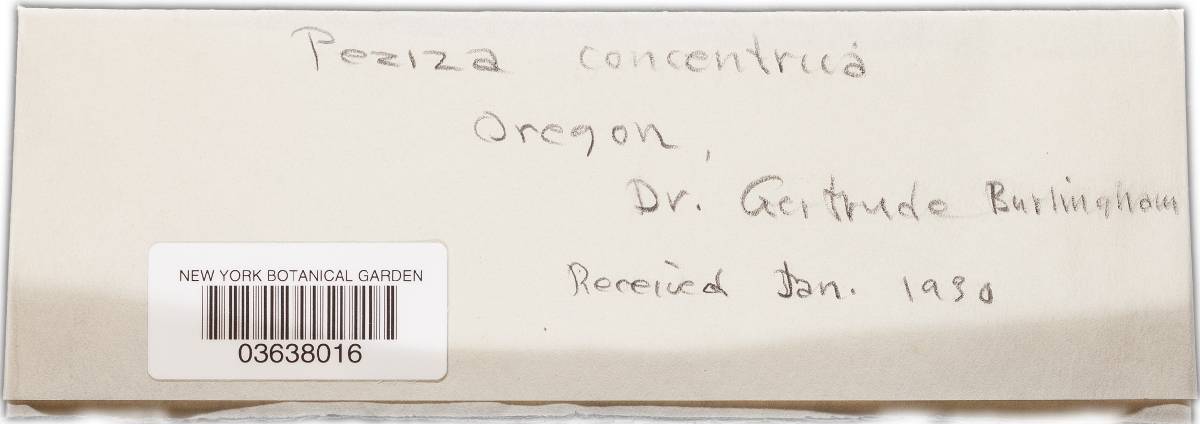 Peziza concentrica
Oregon,
Dr. Gertrude Burlingham
Received Jan. 1930
NEW YORK BOTANICAL GARDEN
03638016